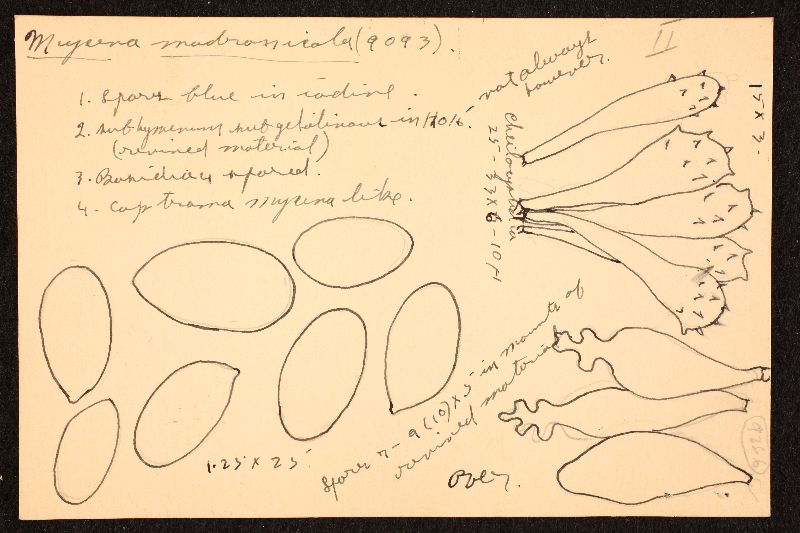 Mycena madronicola (9093).
II
1. Spores blue in iodine.
2. subhymenium subgelatinous in KOH.
(revived material)
3. Basidia 4 spored.
4. Cap trama mycena like.
not always
however.
15 x 3
Cheilocystidia
25-33 x 6-10 µ
Spores 7-9 (10) x 5 in mounts of
revived material
1.25 x 25